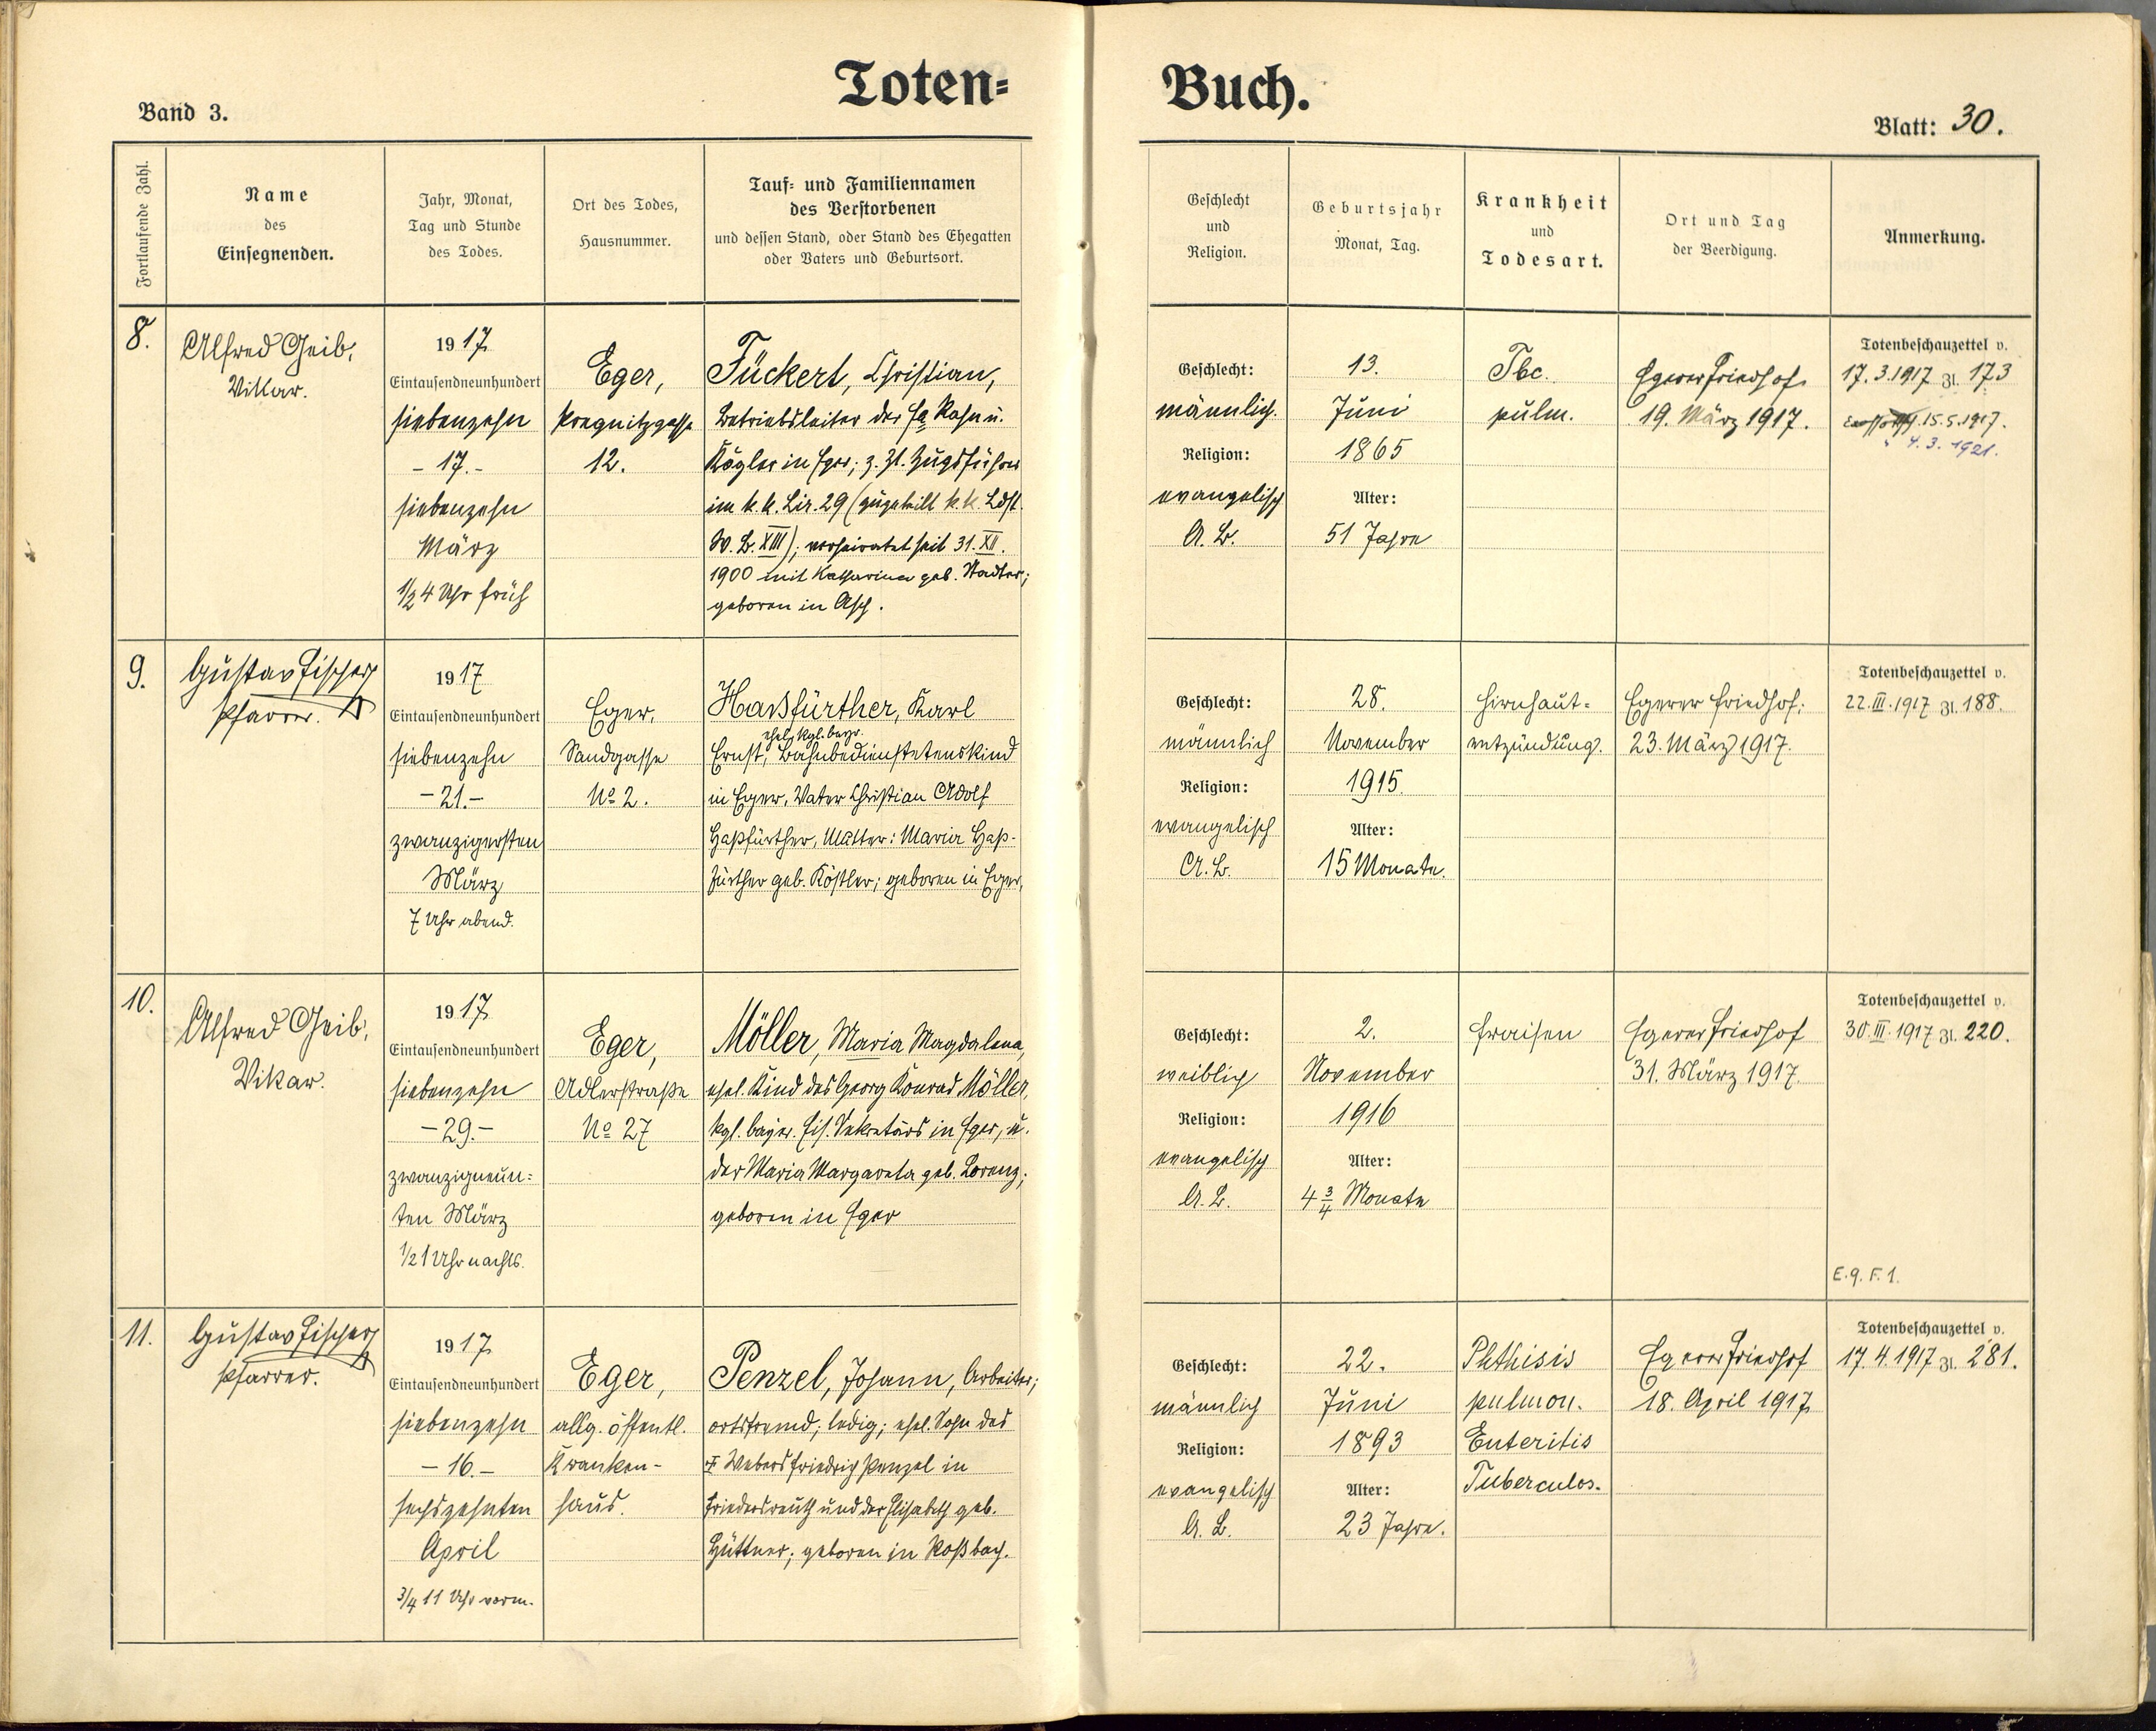 Toten=
Buch.
Band 3.
Blatt: 30.
Fortlaufende Zahl.
Name
des
Einsegnenden.
Jahr, Monat,
Tag und Stunde
des Todes.
Ort des Todes,
Hausnummer.
Tauf= und Familiennamen
des Verstorbenen
und dessen Stand, oder Stand des Ehegatten
oder Vaters und Geburtsort.
Geschlecht
und
Religion.
Geburtsjahr
Monat, Tag.
Krankheit
und
Todesart.
Ort und Tag
der Beerdigung.
Anmerkung.
8.
Alfred Geib,
Vikar.
1917
Eintausendneunhundert
siebenzehn
- 17. -
siebenzehn
März
1/2 4 Uhr früh
Eger,
12.
Fückert, Christian,
Betriebsleiter der Fa Rahn u.
Kögler in Eger; z. Zt. Zugsführer
im k. k. L.i.r. 29 (zugeteilt k. k. Ldst.
W. B. XIII); verheiratet seit 31. XII.
1900 mit Katharina geb. Stadler;
geboren in Asch.
Geschlecht:
männlich.
Religion:
evangelisch
A. B.
13.
Juni
1865
Alter:
51 Jahre
Tbc.
pulm.
Egerer Friedhof.
19. März 1917.
Totenbeschauzettel v.
17. 3. 1917 Zl. 173
15. 5. 1917.
" 4. 3. 1921.
9.
Gustav Fischer
Pfarrer.
1917
Eintausendneunhundert
siebenzehn
- 21. -
zwanzigersten
März
7 Uhr abend.
Eger,
Sandgasse
No 2.
Haßfürther, Karl
ehel. kgl. bayr.
Ernst, Bahnbedienstetenskind
in Eger, Vater Christian Adolf
Haßfürther, Mutter: Maria Haß-
fürther geb. Köstler; geboren in Eger,
Geschlecht:
männlich
Religion:
evangelisch
A. B.
28.
November
1915.
Alter:
15 Monate.
Hirnhaut-
entzündung.
Egerer Friedhof;
23. März 1917.
Totenbeschauzettel v.
22. III. 1917 Zl. 188.
10.
Alfred Geib,
Vikar.
1917
Eintausendneunhundert
siebenzehn
- 29. -
zwanzigneun=
ten März
1/2 1 Uhr nachts.
Eger,
Adlerstraße
No 27
Möller, Maria Magdalena,
ehel. Kind des Georg Konrad Möller,
kgl. bayer. Eis. Sekretärs in Eger, u.
der Maria Margareta geb. Lorenz;
geboren in Eger
Geschlecht:
weiblich
Religion:
evangelisch
A. B.
2.
November
1916
Alter:
4 3/4 Monate
Fraisen
Egerer Friedhof
31. März 1917.
Totenbeschauzettel v.
30. III. 1917 Zl. 220.
E. 9. F. 1.
11.
Gustav Fischer
Pfarrer.
1917
Eintausendneunhundert
siebenzehn
- 16. -
sechszehnten
April
3/4 11 Uhr vorm.
Eger,
allg. öffentl.
Kranken-
haus.
Penzel, Johann, Arbeiter;
ortsfremd; ledig; ehel. Sohn des
Webers Friedrich Penzel in
Friedersreuth und der Elisabeth geb.
Hüttner; geboren in Roßbach.
Geschlecht:
männlich
Religion:
evangelisch
A. B.
22.
Juni
1893
Alter:
23 Jahre.
Phthisis
pulmon.
Enteritis
Tuberculos.
Egerer Friedhof
18. April 1917
Totenbeschauzettel v.
17. 4. 1917 Zl. 281.